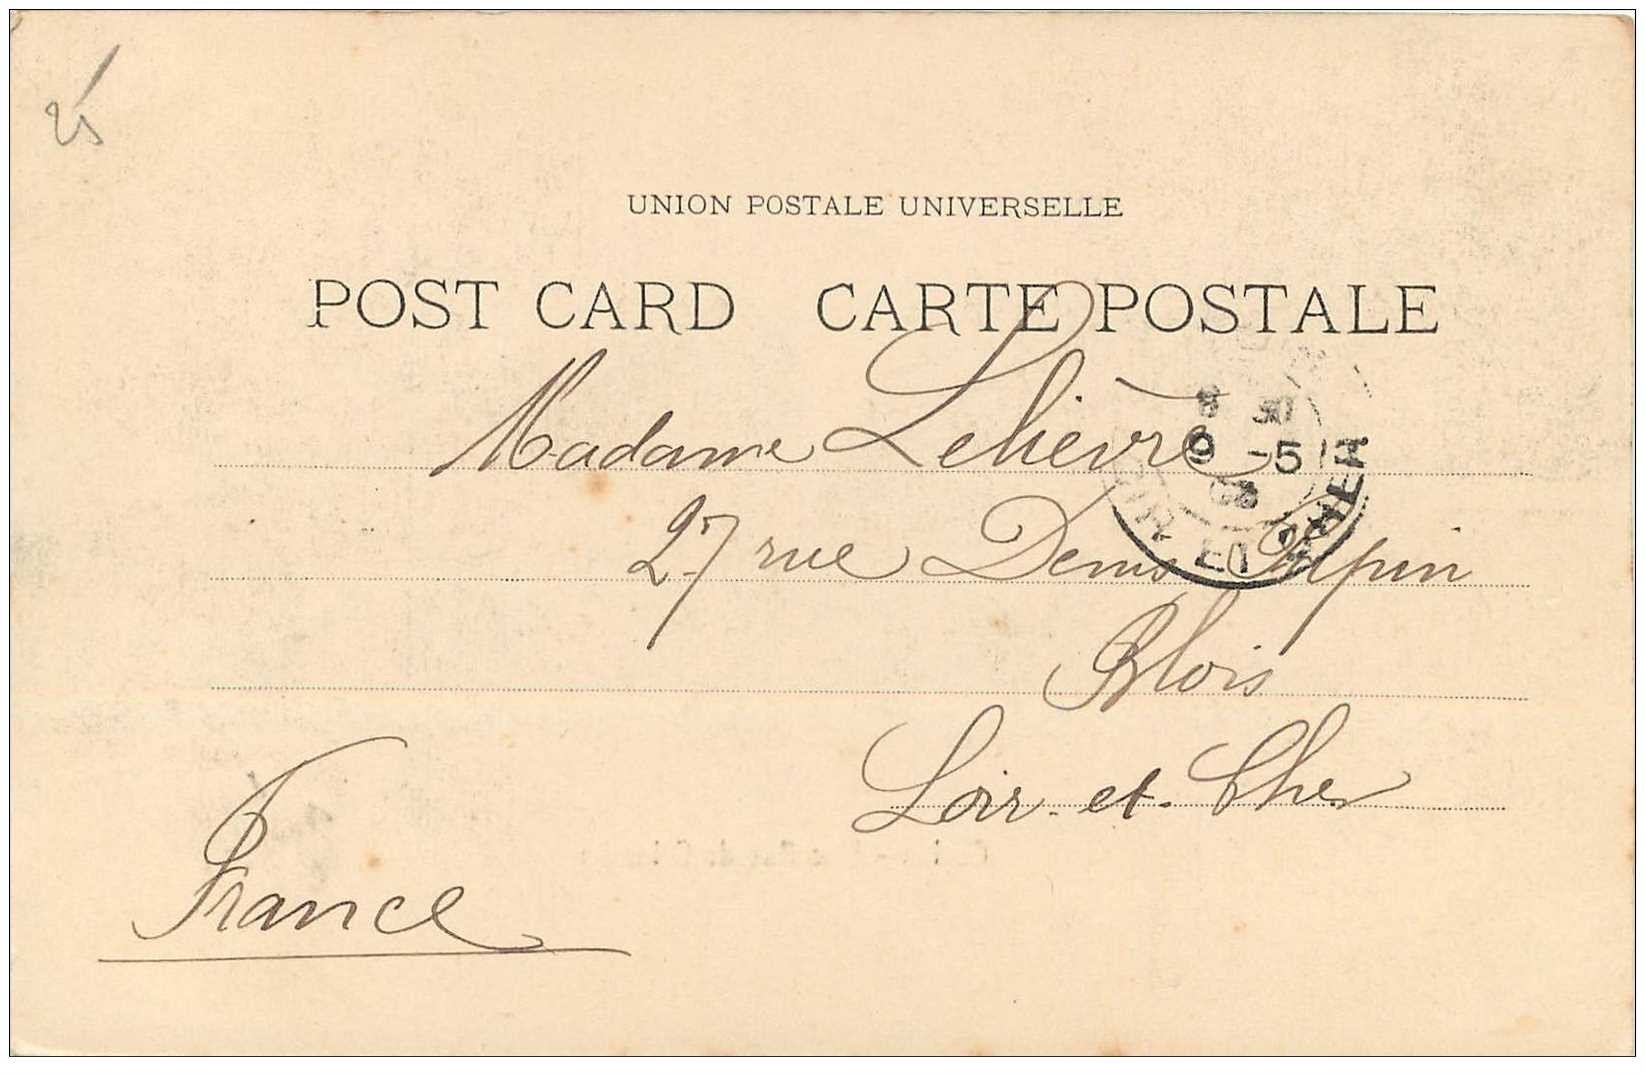 25
UNION POSTALE UNIVERSELLE
POST CARD CARTE POSTALE
Madame Lelièvre
8 30
9 -5
03
LOIR ET CHER
27 rue Denis Papin
Blois
Loir-et-Cher
France